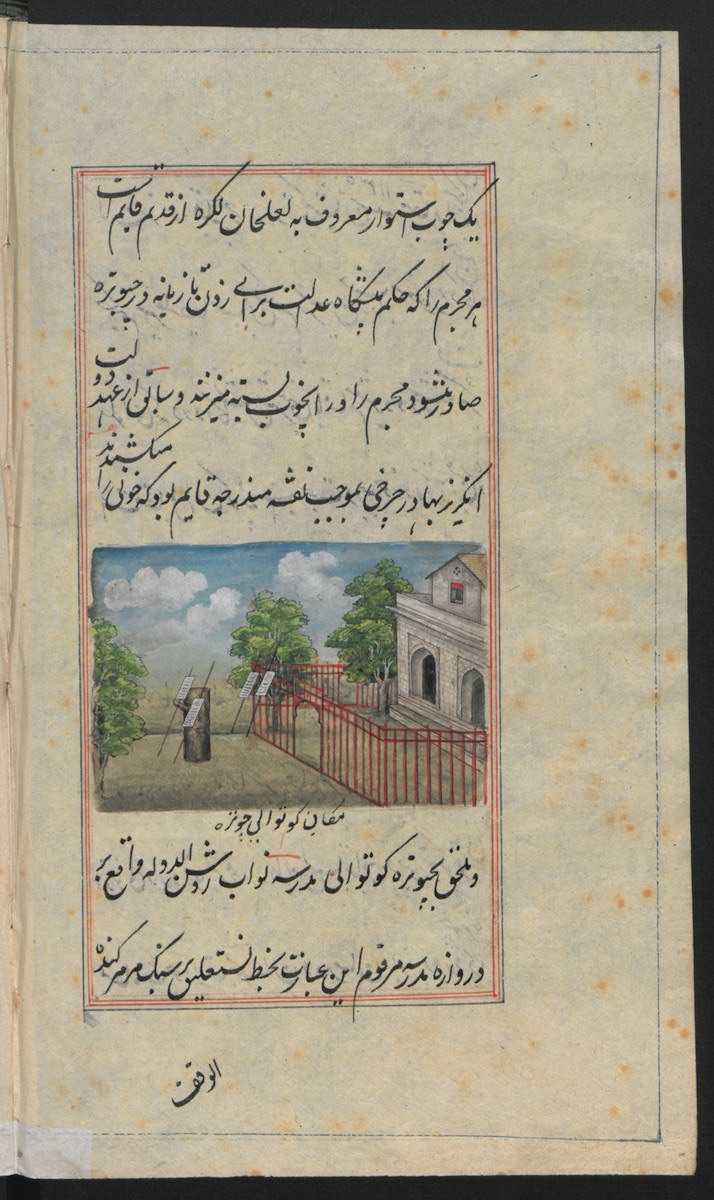 یک چوب استوار معروف به لعلخان لکره از قدیم قایم است
هر مجرم را که حکم پیشگاه عدالت برای زدن تازیانه در چبوتره
صادر میشود مجرم را در انچوب بسته میزنند و سابق از عهد دولت
انگریز بهادر چرخی بموجب نقشه مندرجه قایم بود که خونی را میکشیدند
مکان کوتوالی چبوتره
و ملحق بچبوتره کوتوالی مدرسه نواب روشن الدوله واقع بر
دروازه مدرسه مرقوم این عبارت بخط نستعلیق بر سنک مرمر کنده
الوقف